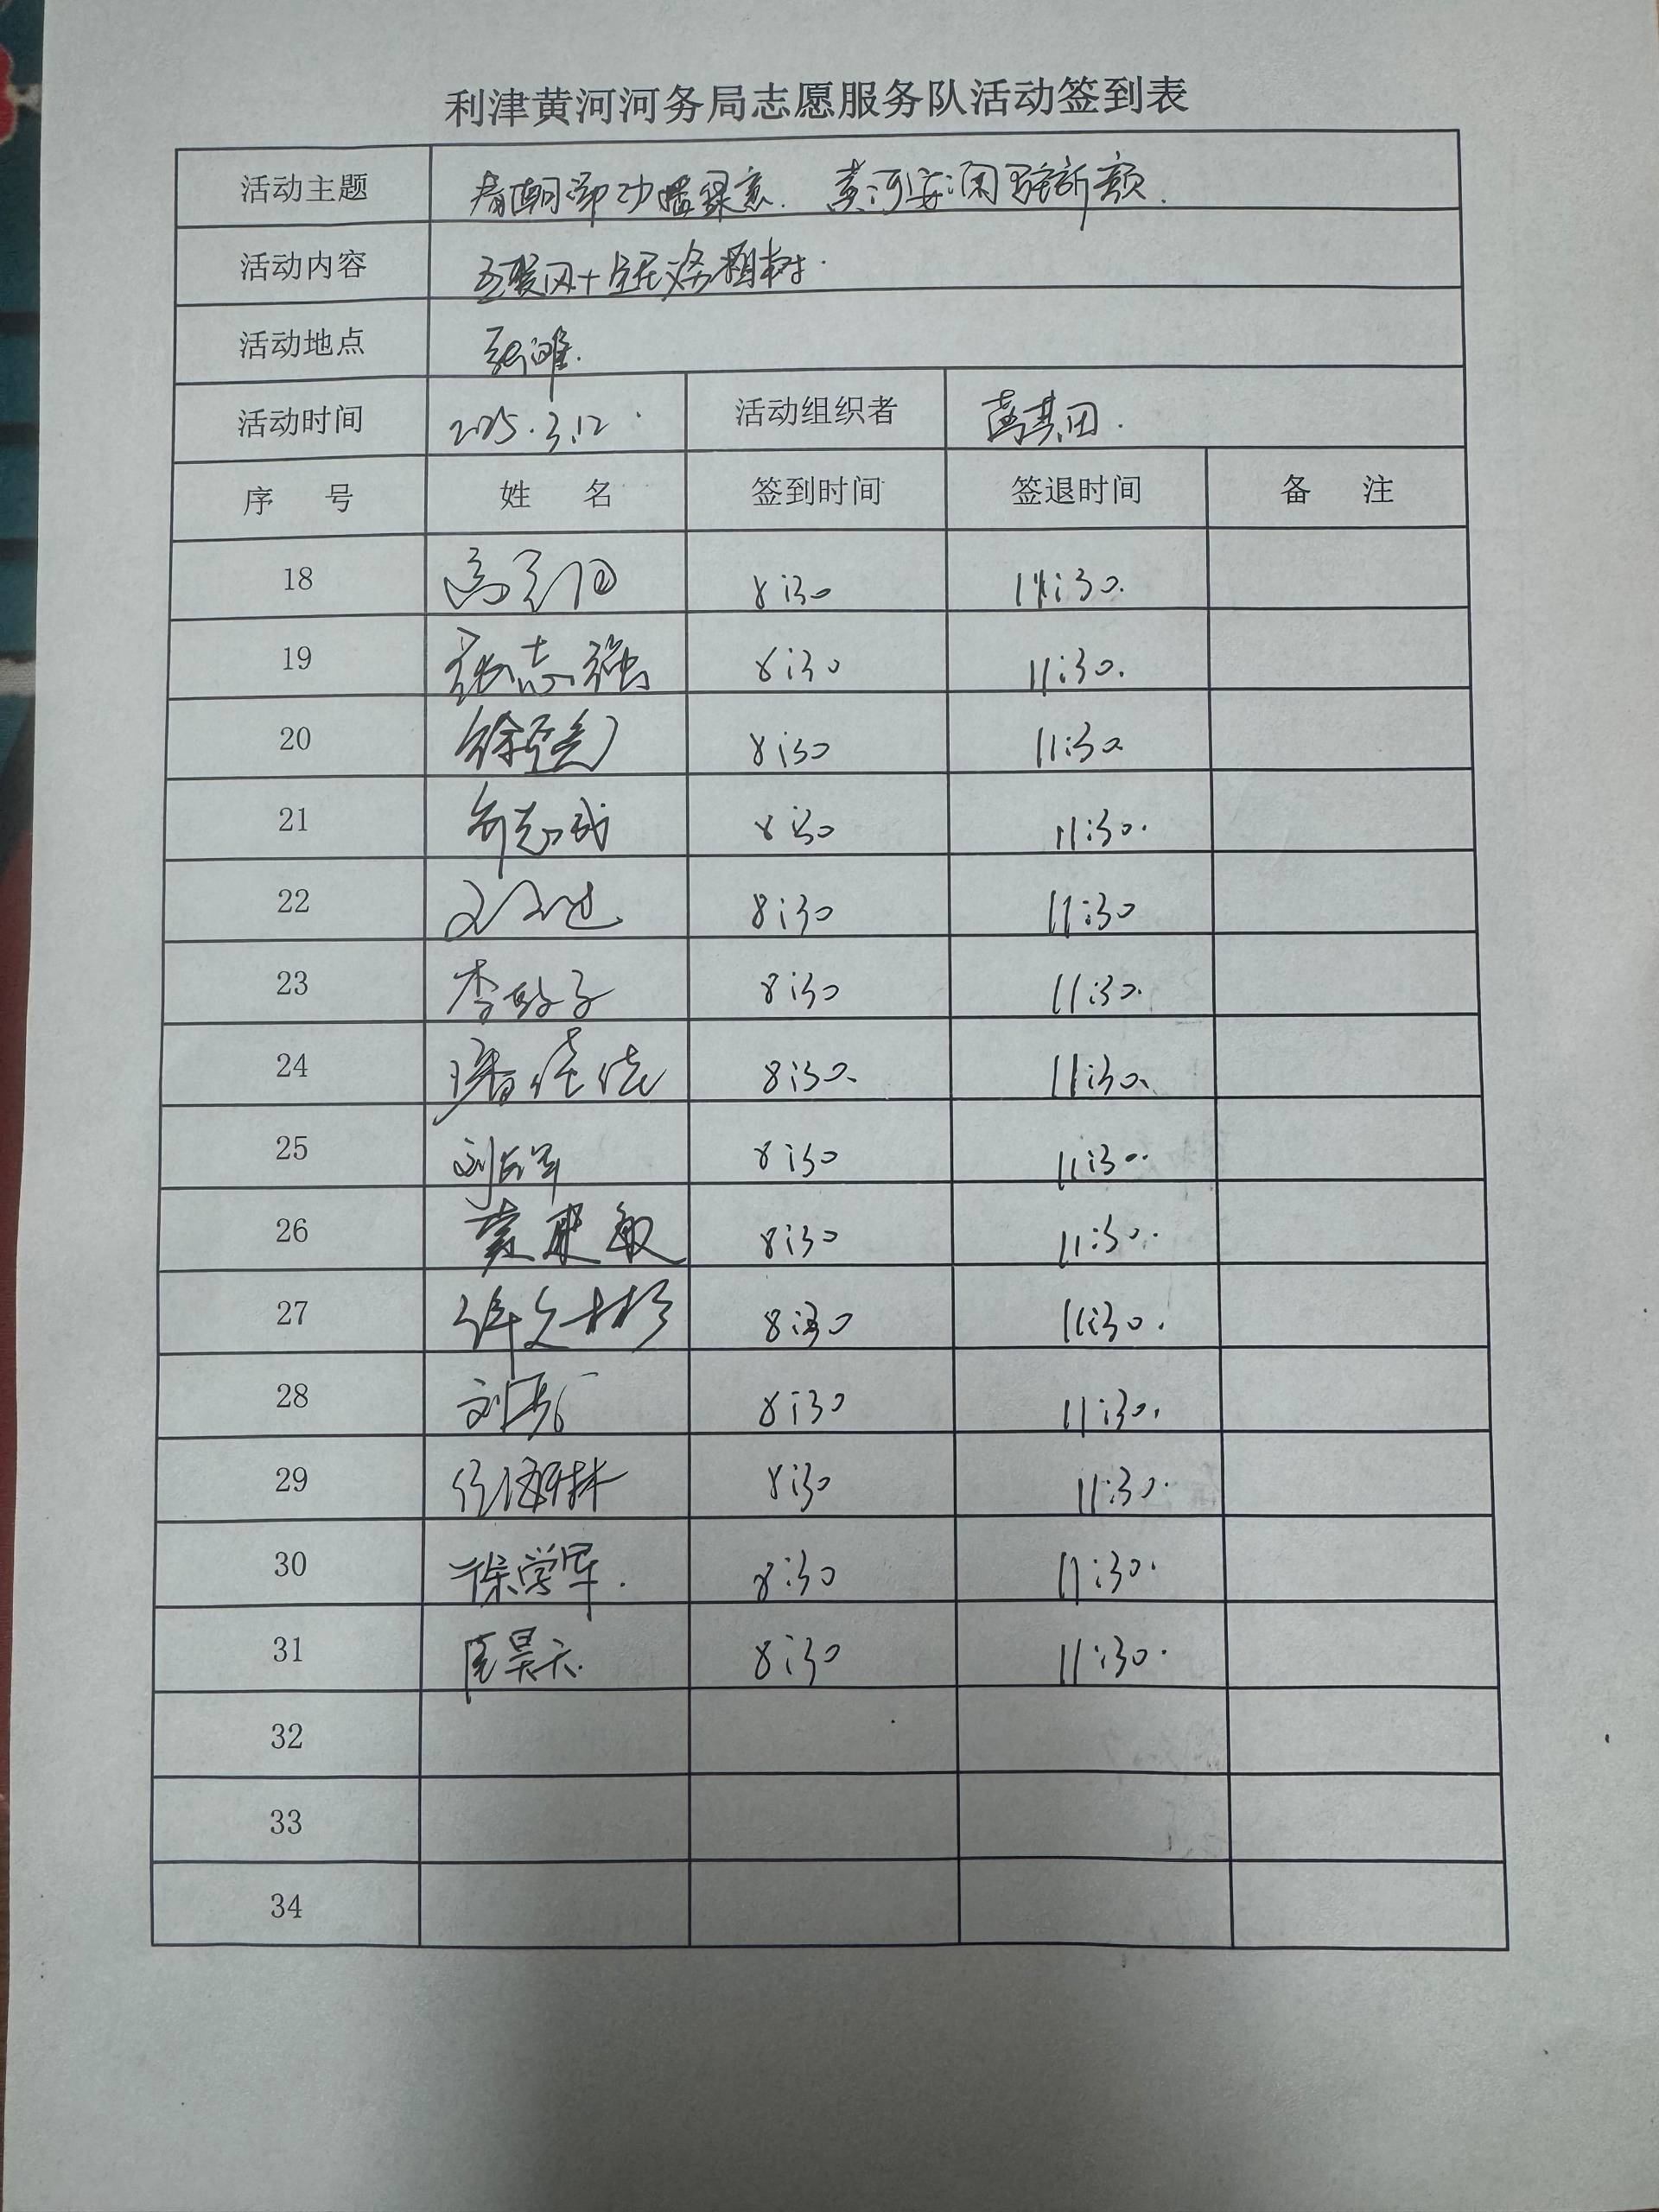 利津黄河河务局志愿服务队活动签到表
活动主题 春潮 绿意. 黄河安澜 新
活动内容 互联网+全民义务植树.
活动地点 滩.
活动时间 2025.3.12 活动组织者
序 号 姓 名 签到时间 签退时间 备 注
18 高 8:30 11:30.
19 张志强 8:30 11:30.
20 徐 8:30 11:30
21 志成 8:30 11:30.
22 8:30 11:30
23 李 子 8:30 11:30.
24 潘佳佳 8:30. 11:30.
25 刘 军 8:30 11:30.
26 建敏 8:30 11:30.
27 许文彬 8:30 11:30.
28 刘 8:30 11:30.
29 任海林 8:30 11:30.
30 徐学军. 8:30 11:30.
31 昊天. 8:30 11:30.
32
33
34